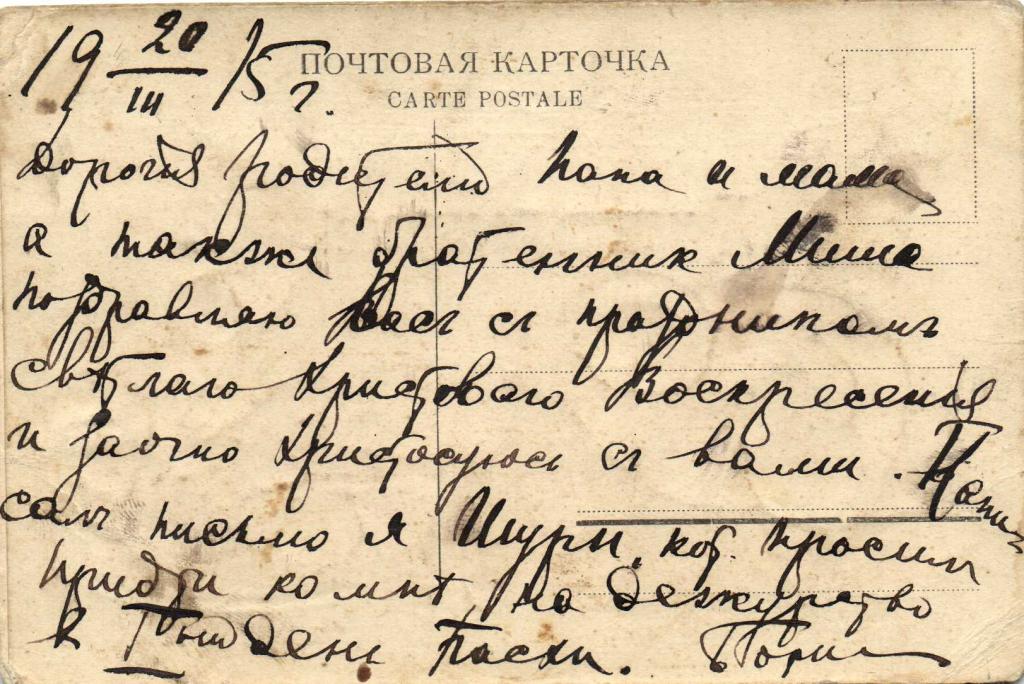 19 20/III 15 г.
ПОЧТОВАЯ КАРТОЧКА
CARTE POSTALE
Дорогія родители папа и мама
а также братенник Миша
поздравляю Васъ съ праздникомъ
Свѣтлаго Христоваго Воскресенія
и заочно Христосуюсь съ вами. Напи
салъ письмо я Шуры, кот. просилъ
придти ко мнѣ, на дежурство
в I ый день Пасхи. Борис